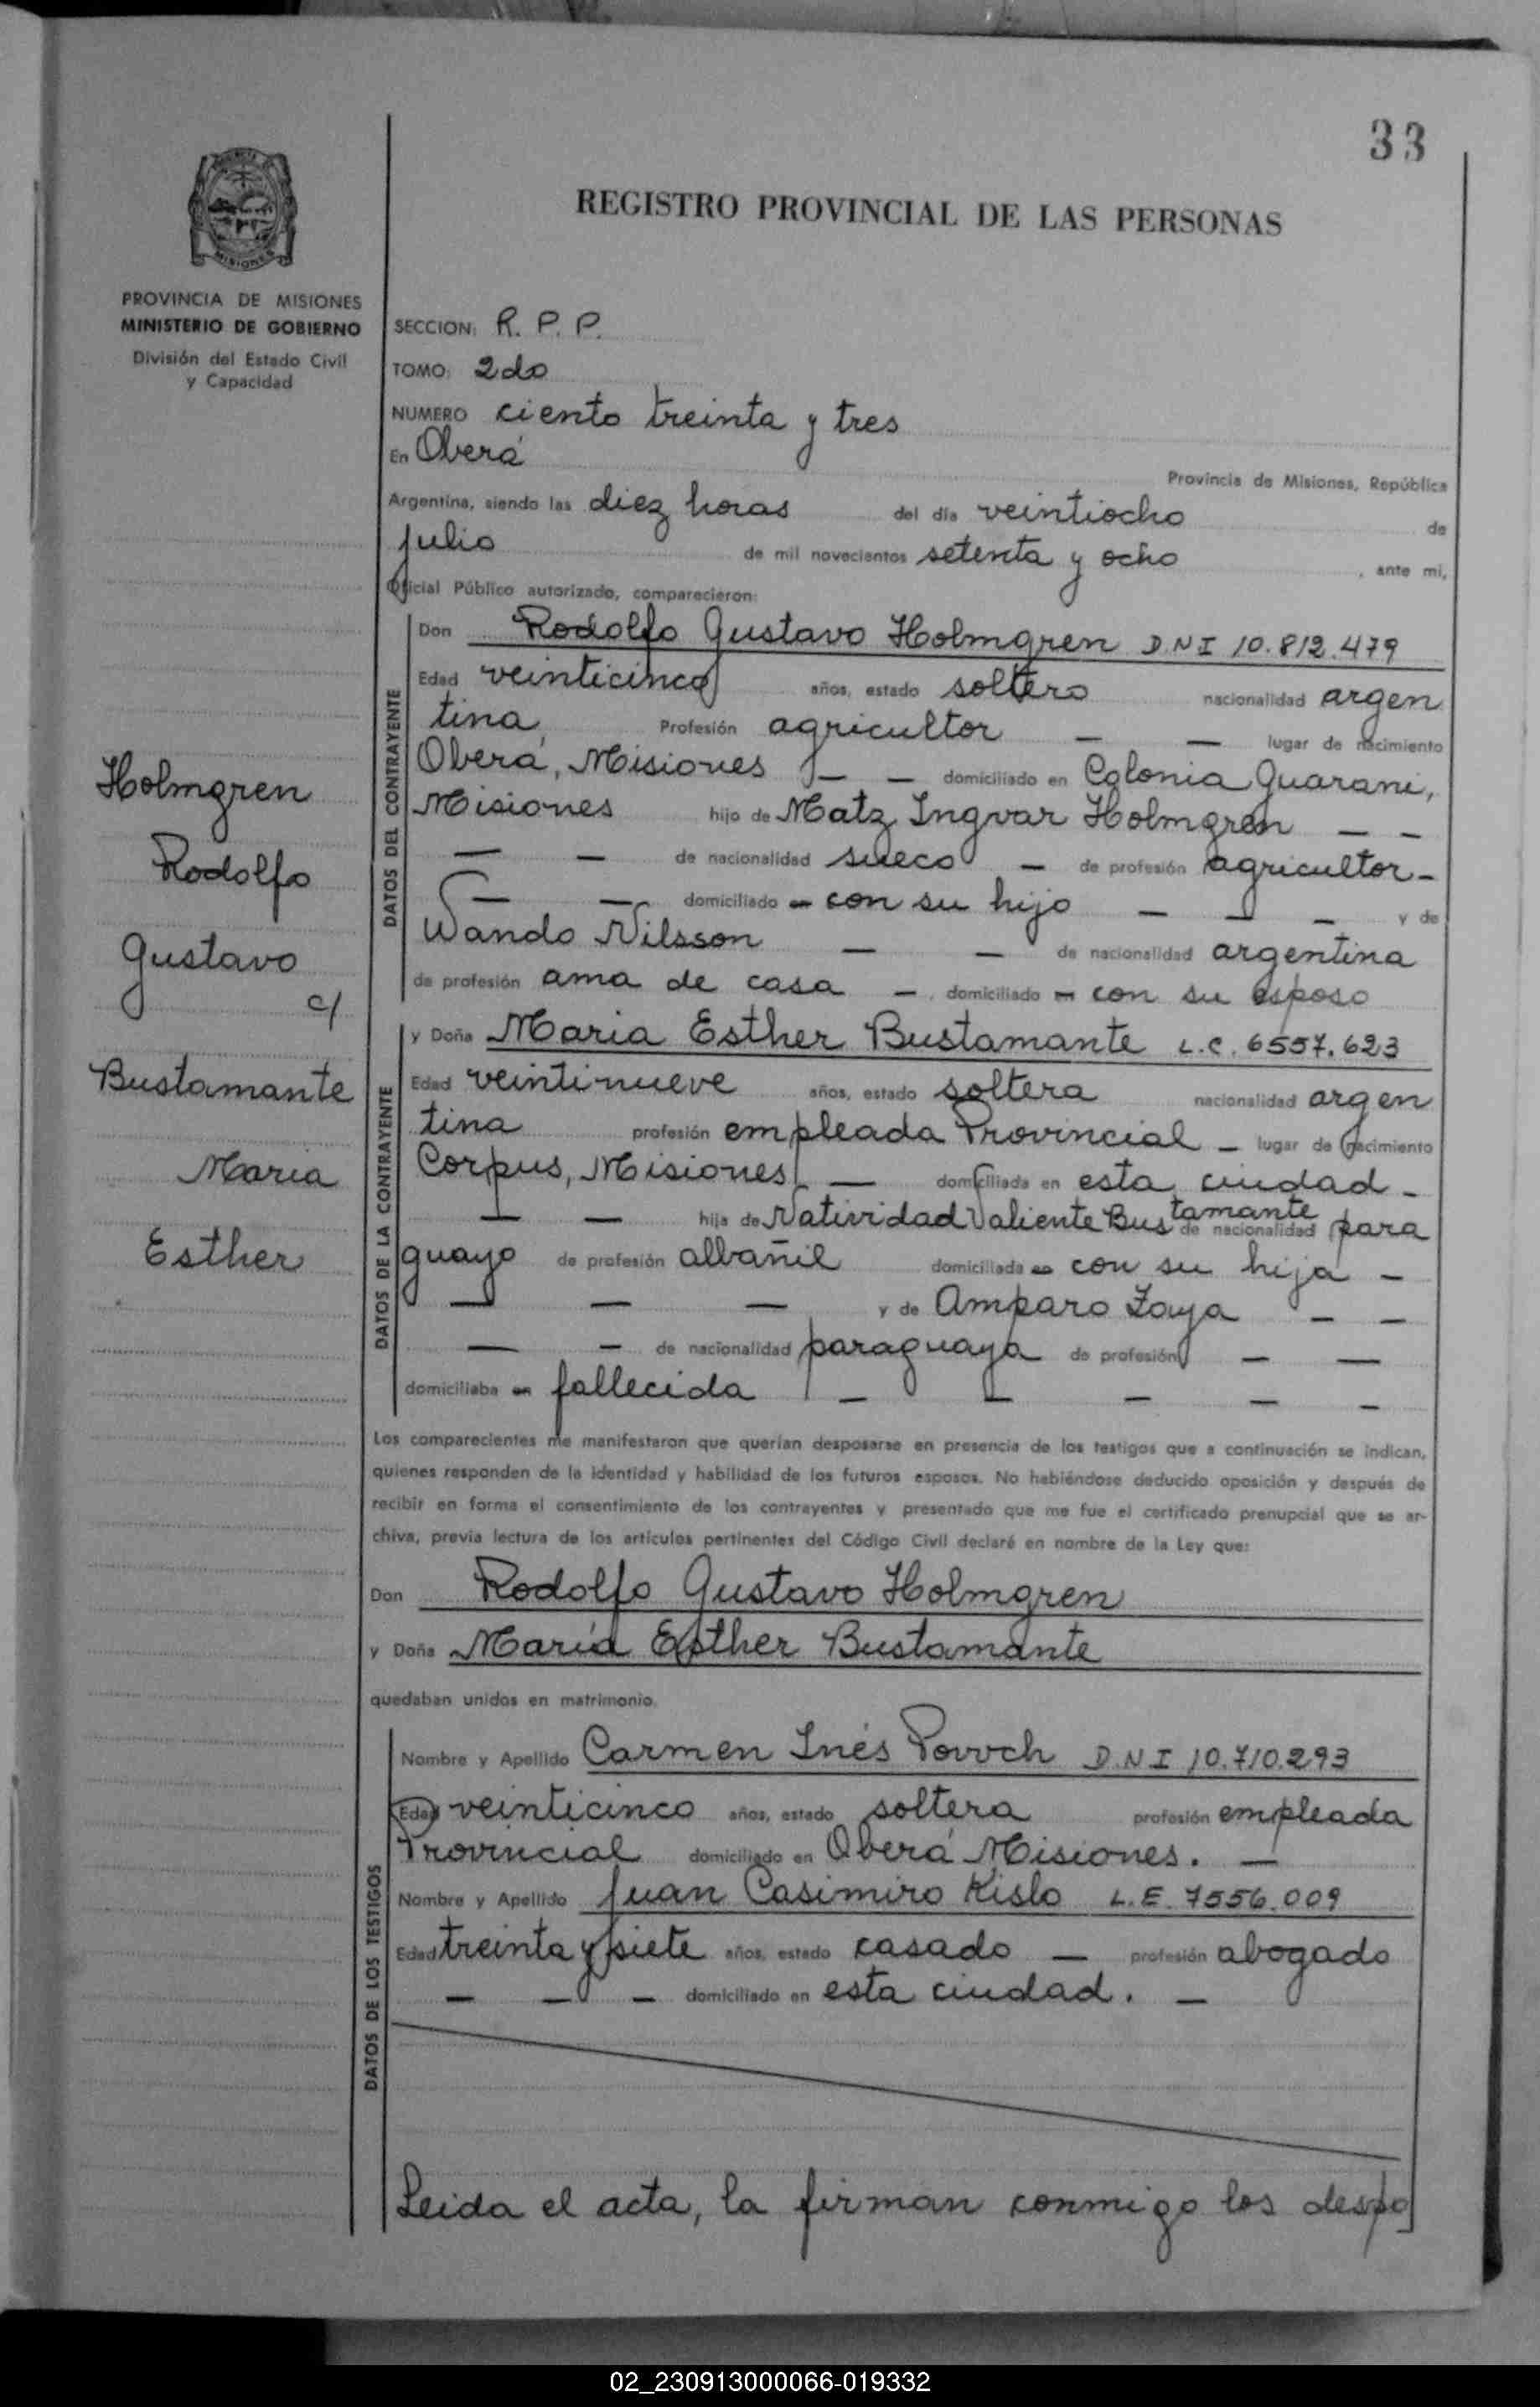 33
REGISTRO PROVINCIAL DE LAS PERSONAS
MISIONES
PROVINCIA DE MISIONES
MINISTERIO DE GOBIERNO
División del Estado Civil
y Capacidad
Holmgren
Rodolfo
Gustavo
c/
Bustamante
Maria
Esther
SECCION: R. P. P.
TOMO: 2do
NUMERO ciento treinta y tres
En Oberá
Provincia de Misiones, República
Argentina, siendo las diez horas del día veintiocho de
julio de mil novecientos setenta y ocho, ante mi,
Oficial Público autorizado, comparecieron:
DATOS DEL CONTRAYENTE
Don Rodolfo Gustavo Holmgren D.N.I 10.812.479
Edad veinticinco años, estado soltero nacionalidad argen
tina, Profesión agricultor — — lugar de nacimiento
Oberá, Misiones — — domiciliado en Colonia Guarani,
Misiones hijo de Matz Ingvar Holmgren — —
— — de nacionalidad sueco — de profesión agricultor -
— — domiciliado en con su hijo — — — y de
Wando Nilsson — — de nacionalidad argentina
de profesión ama de casa —, domiciliado en con su esposo
DATOS DE LA CONTRAYENTE
y Doña Maria Esther Bustamante L.C. 6557.623
Edad veintinueve años, estado soltera nacionalidad argen
tina profesión empleada Provincial — lugar de nacimiento
Corpus, Misiones — domiciliada en esta ciudad -
— — hija de Natividad Valiente Bustamante de nacionalidad para
guayo de profesión albañil domiciliada en con su hija —
— — — y de Amparo Zaya — —
— — de nacionalidad paraguaya de profesión — —
domiciliaba en fallecida — — — — —
Los comparecientes me manifestaron que querían desposarse en presencia de los testigos que a continuación se indican,
quienes responden de la identidad y habilidad de los futuros esposos. No habiéndose deducido oposición y después de
recibir en forma el consentimiento de los contrayentes y presentado que me fue el certificado prenupcial que se ar-
chiva, previa lectura de los artículos pertinentes del Código Civil declaré en nombre de la Ley que:
Don Rodolfo Gustavo Holmgren
y Doña María Esther Bustamante
quedaban unidos en matrimonio.
DATOS DE LOS TESTIGOS
Nombre y Apellido Carmen Inés D.N.I 10.710.293
Edad veinticinco años, estado soltera profesión empleada
Provincial domiciliado en Oberá Misiones. —
Nombre y Apellido Juan Casimiro Kislo L.E. 7556.009
Edad treinta y siete años, estado casado — profesión abogado
— — — domiciliado en esta ciudad. —
Leida el acta, la firman conmigo los despo
02_230913000066-019332